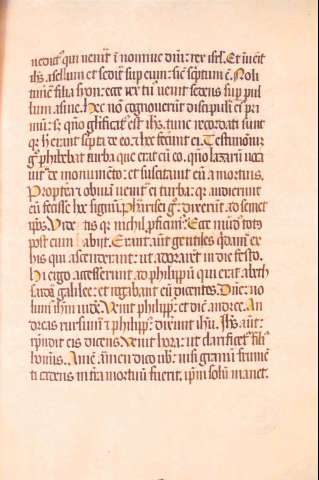 nedict' qui uenit ĩ nomine dñi: rex isrl. Et iuẽit
ihs asellum et sedit sup eum: sic̃ sc̃ptum ẽ. Noli
timẽ filia syon: ecce rex tu' uenit sedens sup pul
lum asine. Hec nõ cognouerũt discipuli ei' pri
mũ: s; qñ glificat' est ihs. tunc recordati sunt
qr h̃ erant sc̃pta de eo. et hec fecerũt ei. Testimoniũ
g° phibebat turba que erat cũ eo. qñ lazarũ uoca
uit de monumẽto: et suscitauit eũ a mortuis.
Propterea et obuiã uenit ei turba: qr audierunt
eũ fecisse hoc signũ. Pharisei g°: dixerũt ad semet
ip̃os. Videtis qr nichil pficim'. Ecce mũd' tot'
post eum abiit. Erant aut̃ gentiles qdam ex
his qui ascenderant: ut adorarẽt in die festo.
Hi ergo accesserunt ad philippũ qui erat abeth
saida galilee: et rogabant eũ dicentes. Dñe: uo
lum' ihm uidẽ. Venit philipp': et dic̃ andree. An
dreas rursum et philipp': dixerũt ihũ. Ihs aut̃:
rñdit eis dicens. Venit hora: ut clarificet' fili'
hoĩnis. Amẽ. amen dico uob': nisi granũ frumẽ
ti cadens in terra mortuũ fuerit. ip̃m solũ manet.